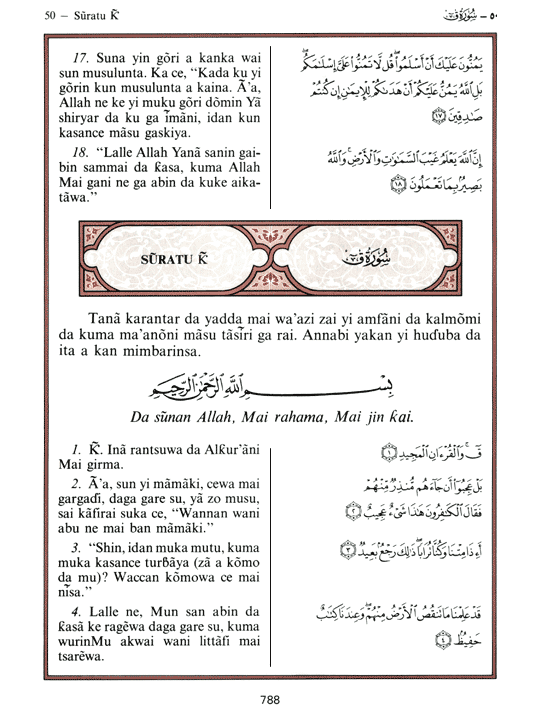 50 — Sūratu Ƙ̃
٥٠ — سُورَةُ قٓ
17. Suna yin gōri a kanka wai
sun musulunta. Ka ce, “Kada ku yi
gōrin kun musulunta a kaina. Ā’a,
Allah ne ke yi muku gōri dōmin Yā
shiryar da ku ga īmāni, idan kun
kasance māsu gaskiya.
18. “Lalle Allah Yanā sanin gai-
bin sammai da ƙasa, kuma Allah
Mai gani ne ga abin da kuke aika-
tāwa.”
يَمُنُّونَ عَلَيْكَ أَنْ أَسْلَمُوا۟ ۖ قُل لَّا تَمُنُّوا۟ عَلَىَّ إِسْلَـٰمَكُم ۖ
بَلِ ٱللَّهُ يَمُنُّ عَلَيْكُمْ أَنْ هَدَىٰكُمْ لِلْإِيمَـٰنِ إِن كُنتُمْ
صَـٰدِقِينَ ﴿١٧﴾
إِنَّ ٱللَّهَ يَعْلَمُ غَيْبَ ٱلسَّمَـٰوَٰتِ وَٱلْأَرْضِ ۚ وَٱللَّهُ
بَصِيرٌۢ بِمَا تَعْمَلُونَ ﴿١٨﴾
SŪRATU Ƙ̃
سُورَةُ قٓ
Tanā karantar da yadda mai wa’azi zai yi amfāni da kalmōmi
da kuma ma’anōni māsu tāsĩri ga rai. Annabi yakan yi huɗuba da
ita a kan mimbarinsa.
بِسْمِ ٱللَّهِ ٱلرَّحْمَـٰنِ ٱلرَّحِيمِ
Da sūnan Allah, Mai rahama, Mai jin ƙai.
1. Ƙ̃. Inā rantsuwa da Alƙur’āni
Mai girma.
2. Ā’a, sun yi māmāki, cewa mai
gargaɗi, daga gare su, yā zo musu,
sai kāfirai suka ce, “Wannan wani
abu ne mai ban māmāki.”
3. “Shin, idan muka mutu, kuma
muka kasance turɓāya (zā a kōmo
da mu)? Waccan kōmowa ce mai
nĩsa.”
4. Lalle ne, Mun san abin da
ƙasā ke ragēwa daga gare su, kuma
wurinMu akwai wani littāfi mai
tsarēwa.
قٓ ۚ وَٱلْقُرْءَانِ ٱلْمَجِيدِ ﴿١﴾
بَلْ عَجِبُوٓا۟ أَن جَآءَهُم مُّنذِرٌ مِّنْهُمْ
فَقَالَ ٱلْكَـٰفِرُونَ هَـٰذَا شَىْءٌ عَجِيبٌ ﴿٢﴾
أَءِذَا مِتْنَا وَكُنَّا تُرَابًا ۖ ذَٰلِكَ رَجْعٌۢ بَعِيدٌ ﴿٣﴾
قَدْ عَلِمْنَا مَا تَنقُصُ ٱلْأَرْضُ مِنْهُمْ ۖ وَعِندَنَا كِتَـٰبٌ
حَفِيظٌۢ ﴿٤﴾
788